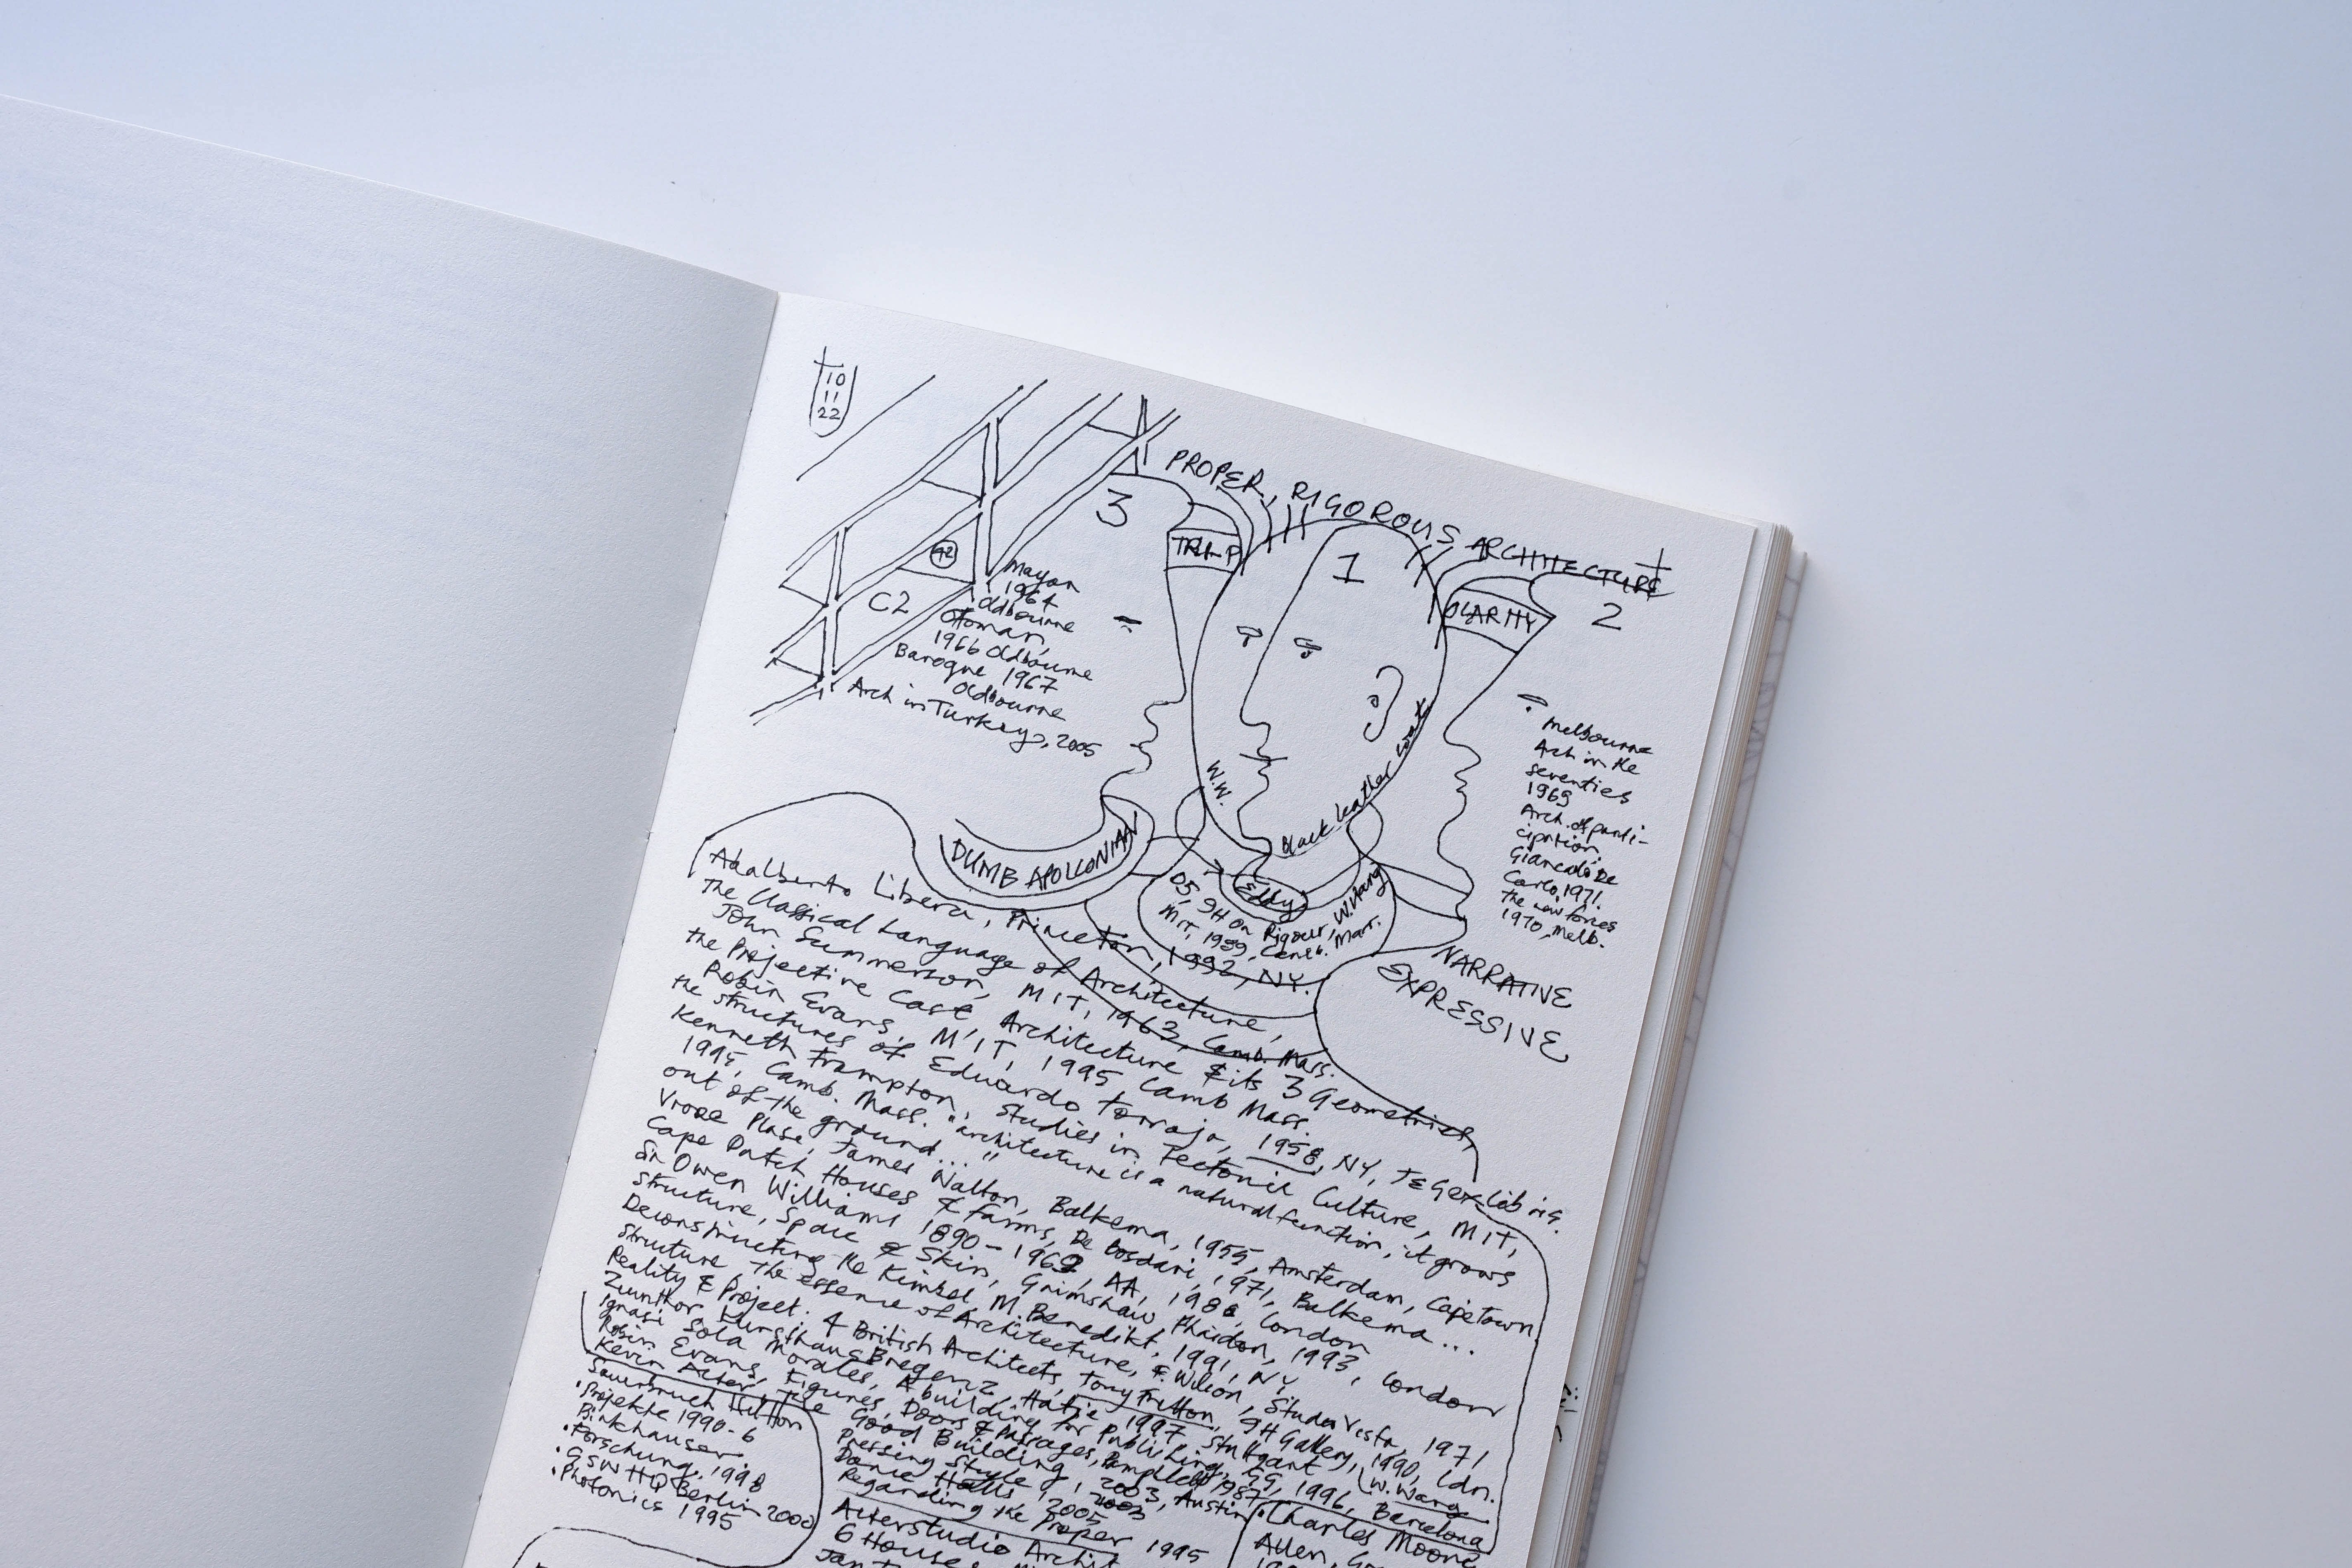 10
11
22
PROPER, RIGOROUS ARCHITECTURE
3
1
2
CLARITY
42
C2
Mayan
1964
Oldbourne
Otoman,
1966 Oldbourne
Baroque 1967
Oldbourne
Arch in Turkey, 2005
W.W.
Black leather coat
Melbourne
Arch in the
seventies
1969
Arch. of parti-
cipation
Giancarlo De
Carlo, 1971.
the new forces
1970, Melb.
DUMB APOLLONIAN
Eddy
05, 9H On Rigour, W. Wang
MIT, 1989, Camb. Mass.
NARRATIVE
EXPRESSIVE
Adalberto Libera, Princeton, 1992, NY.
The Classical Language of Architecture,
John Summerson, MIT, 1963, Camb. Mass.
the Projective Cast Architecture & its 3 Geometries,
Robin Evans, MIT, 1995 Camb Mass.
the structures of Eduardo Torroja, 1958, NY,
Kenneth Frampton, Studies in Tectonic Culture, MIT,
1995, Camb. Mass. "architecture is a natural function, it grows
out of the ground..."
Vroee Plase, James Walton, Balkema, 1955, Amsterdam, Capetown
Cape Dutch Houses & farms, De Bosdari, 1971, Balkema...
Sir Owen Williams 1890-1969, AA, 1986, London
Structure, Space & Skin, Grimshaw, Phaidon, 1993, London
Deconstructing the Kimbel, M. Benedikt, 1991, NY
Structure the essence of Architecture, F. Wilson, Studio Vista, 1971
Reality & Project. 4 British Architects, Tony Fretton, 9H Gallery, 1990, Ldn.
Zumthor Kunsthaus Bregenz, Hatje 1997, Stuttgart (W. Wang
Ignasi Sola Morales, A building for Publishing, GG, 1996, Barcelona
Robin Evans, Figures, Doors & Passages, Pamphlet 1987
Kevin Alter, The Good Building, 2003, Austin
Sauerbruch Hutton
• Projekte 1990-6
Birkhauser.
• Forschung, 1998
• GSW HQ Berlin 2000
• Photonics 1995
Pressing Style, 2003
Dance Halls, 2005
Regarding the Proper 1995
Alterstudio Archit
6 Houses
• Charles Moore
Allen,